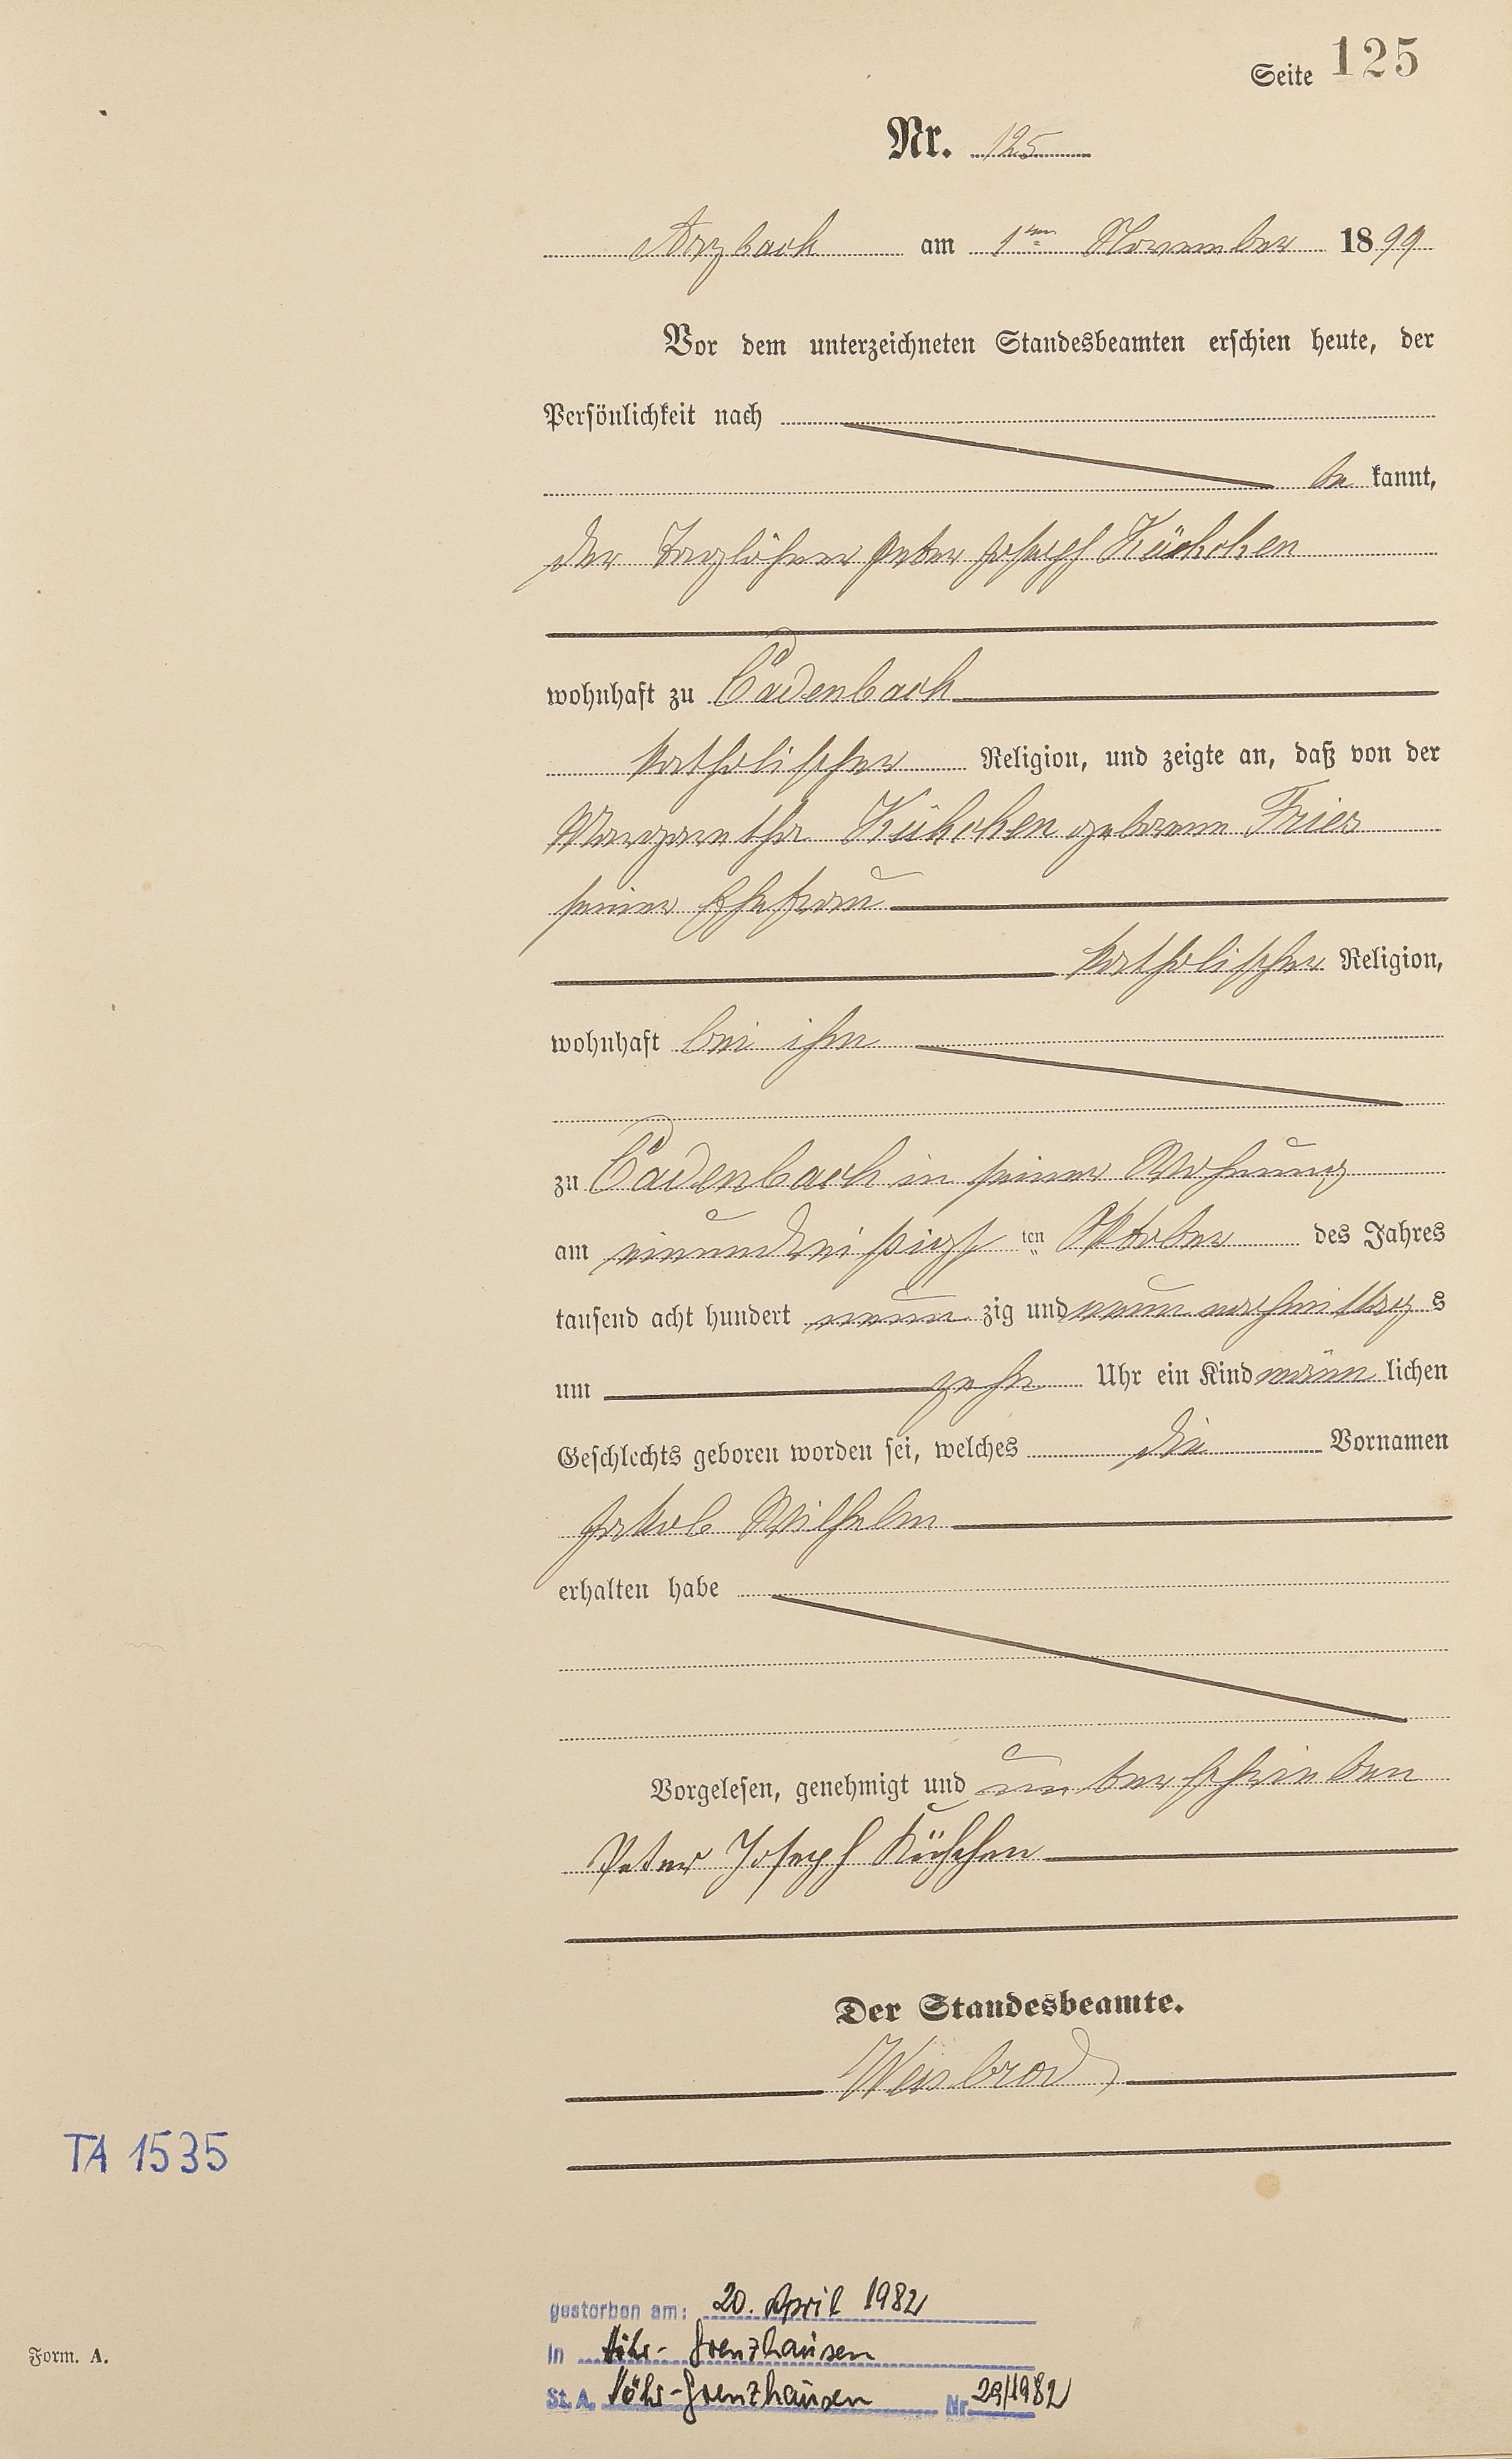 Seite 125
Nr. 125
Arzbach am 1ten November 1899
Vor dem unterzeichneten Standesbeamten erschien heute, der
Persönlichkeit nach
be kannt,
der Taglöhner Peter Joseph Kühchen
wohnhaft zu Cadenbach
katholischer Religion, und zeigte an, daß von der
Margaretha Kühchen geborene Fries
seiner Ehefrau
katholischer Religion,
wohnhaft bei ihm
zu Cadenbach in seiner Wohnung
am einunddreißigsten Oktober des Jahres
tausend acht hundert neun zig und neun nachmittag s
um zehn Uhr ein Kind männ lichen
Geschlechts geboren worden sei, welches die Vornamen
Jakob Wilhelm
erhalten habe
Vorgelesen, genehmigt und unterschrieben
Peter Joseph Kühchen
Der Standesbeamte.
Weisbrod
TA 1535
gestorben am: 20. April 1982
in Höhr-Grenzhausen
Form. A.
St. A. Höhr-Grenzhausen Nr. 29/1982